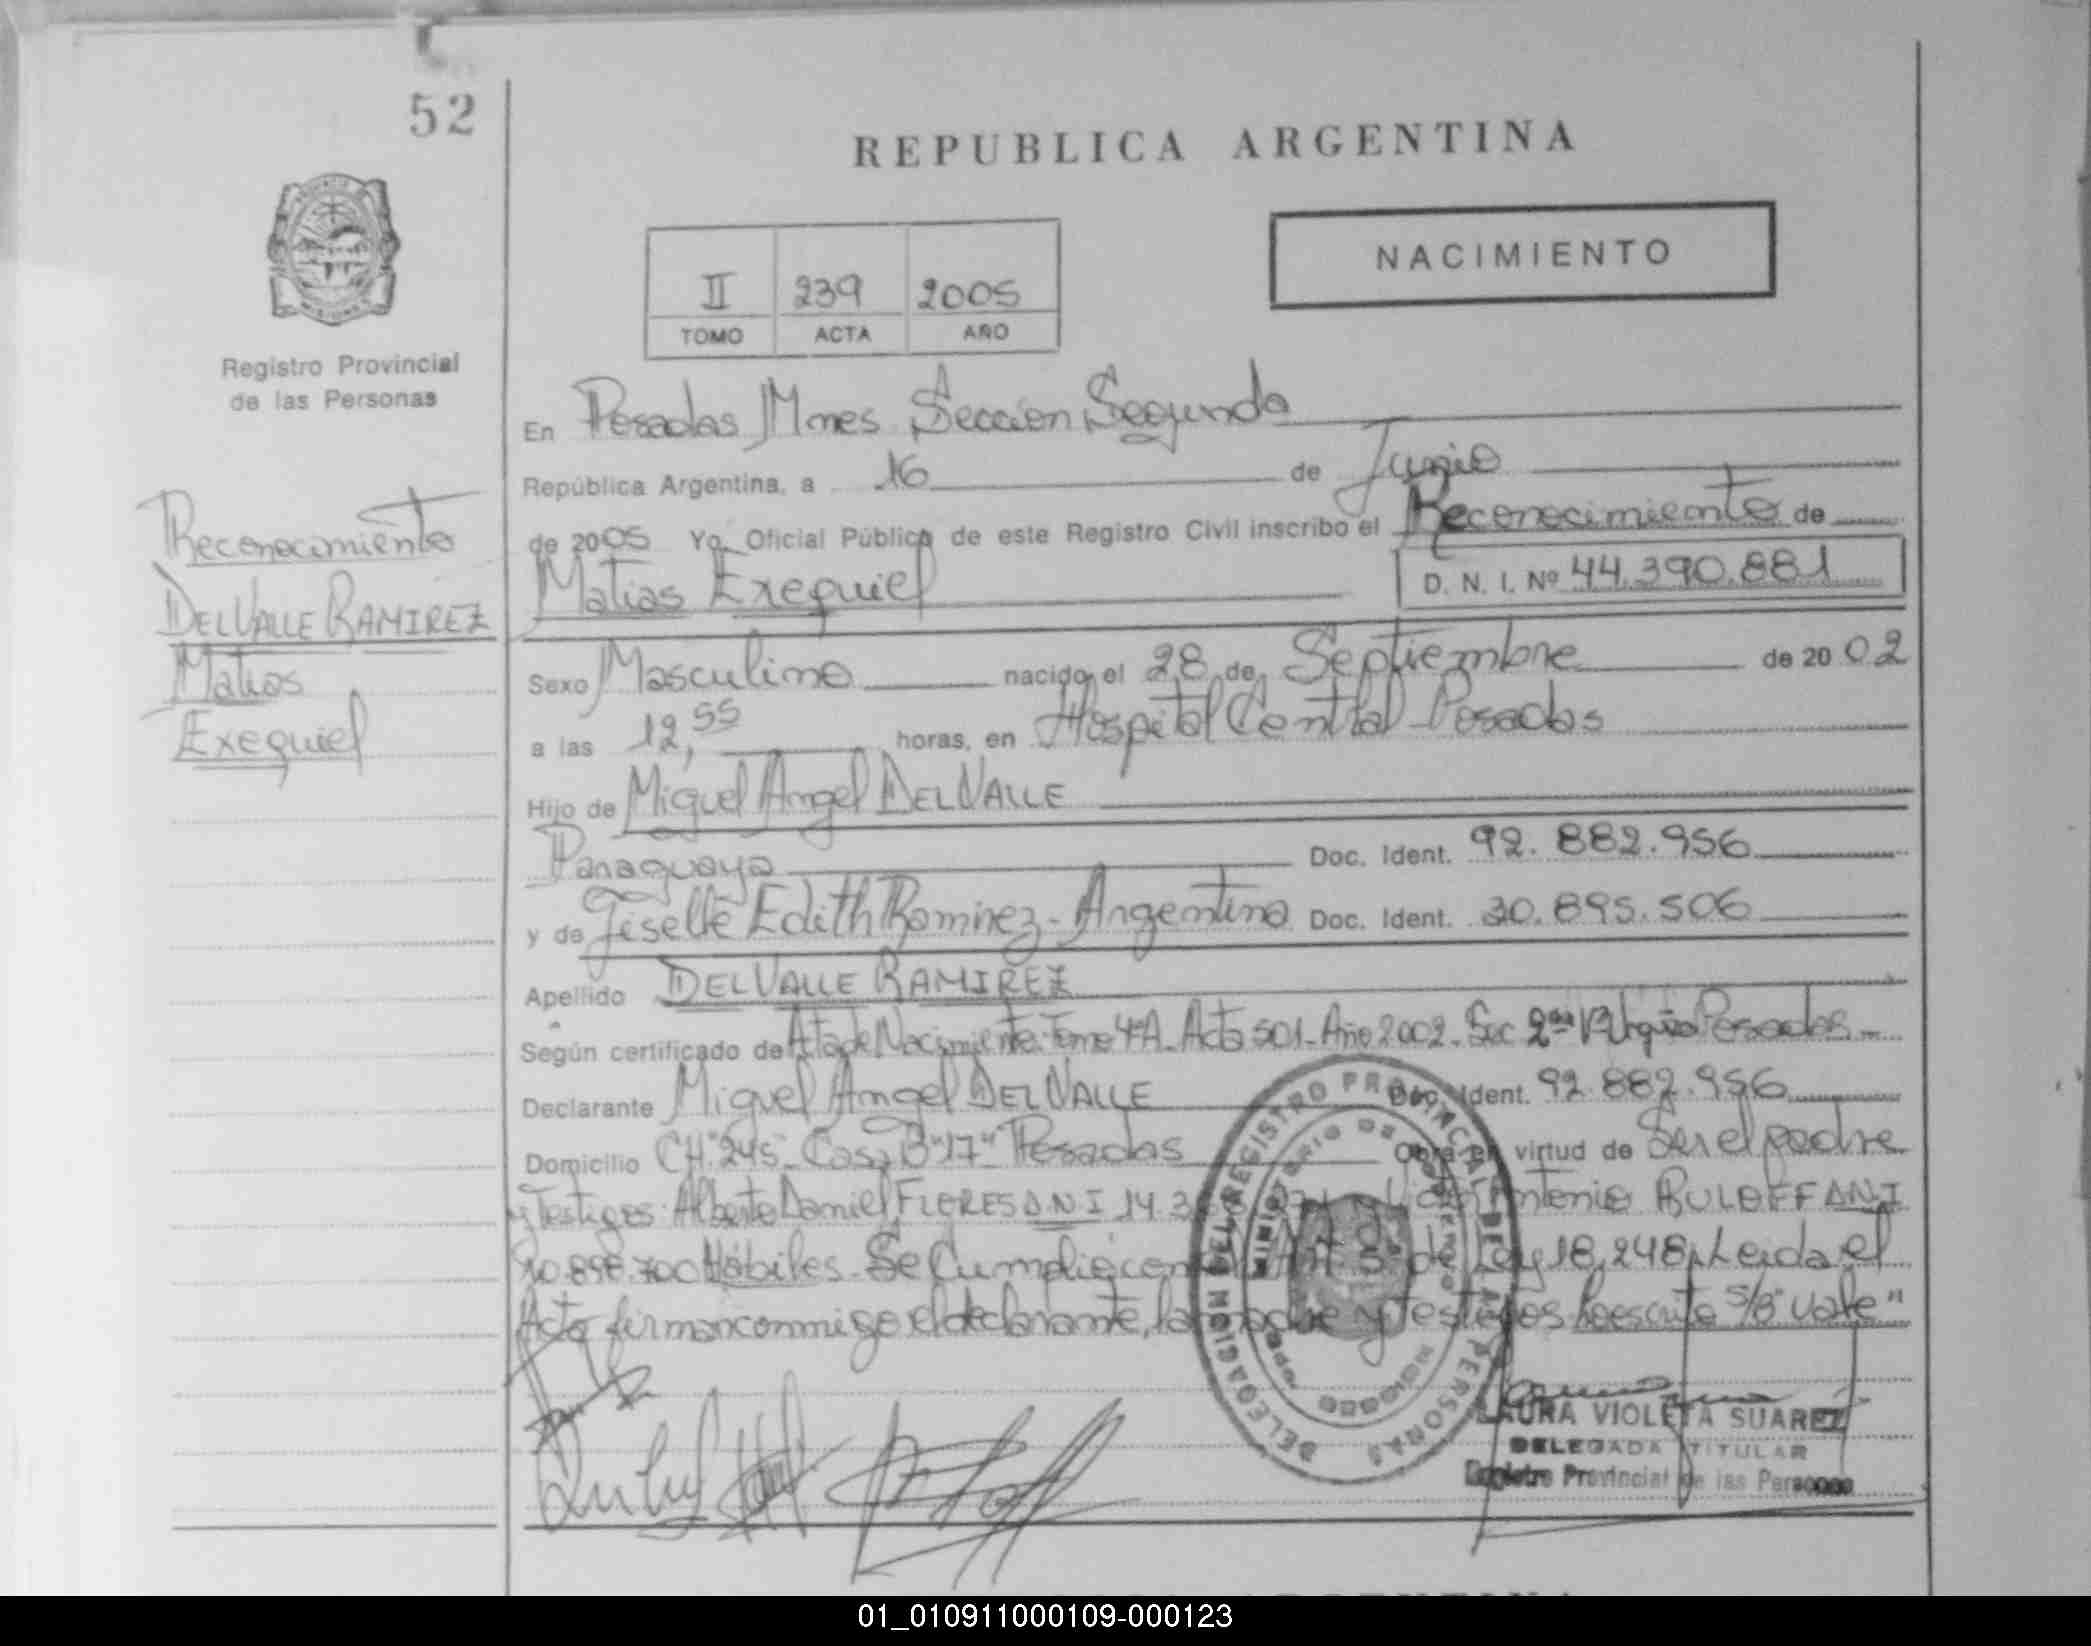 52
REPUBLICA ARGENTINA
NACIMIENTO
II 239 2005
TOMO ACTA AÑO
Registro Provincial
de las Personas
Reconocimiento
DEL VALLE RAMIREZ
Matias
Exequiel
En Posadas Mnes Sección Segunda
República Argentina, a 16 de Junio
de 2005 Yo, Oficial Público de este Registro Civil inscribo el Reconocimiento de
Matias Exequiel D. N. I. Nº 44.390.881
Sexo Masculino nacido el 28 de Septiembre de 20 02
a las 12,55 horas, en Hospital Central Posadas
Hijo de Miguel Angel DEL VALLE
Paraguaya Doc. Ident. 92.882.956
y de Giselle Edith Ramirez - Argentina Doc. Ident. 30.895.506
Apellido DEL VALLE RAMIREZ
Según certificado de Acta de Nacimiento: Tomo 4ºA. Acta 501. Año 2002. Sec 2da Posadas
Declarante Miguel Angel DEL VALLE Doc. Ident. 92.882.956
Domicilio CH."245" Casa B"17" Posadas Obra en virtud de Ser el padre
y Testigos: Alberto Daniel FLORES D N I 14.3 Antonio BULOFF D N I
Hábiles. Se Cumplió con Art. 5º de Ley 18.248. Leida el
Acta firman conmigo el declarante, la madre y testigos Lo escrito S/B "vale"
DELEGACION DEL REGISTRO PROVINCIAL DE LAS PERSONAS
MINISTERIO DE GOBIERNO
MISIONES
LAURA VIOLETA SUAREZ
DELEGADA TITULAR
Registro Provincial de las Personas
01_010911000109-000123